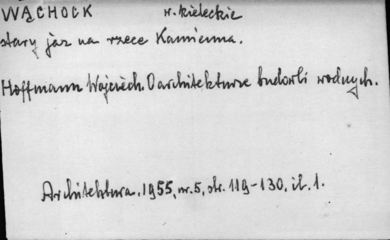 WĄCHOCK w. kieleckie
stary jaz na rzece Kamienna.
Hoffmann Wojciech. O architekturze budowli wodnych.
Architektura, 1955, nr. 5, str. 119-130, il. 1.